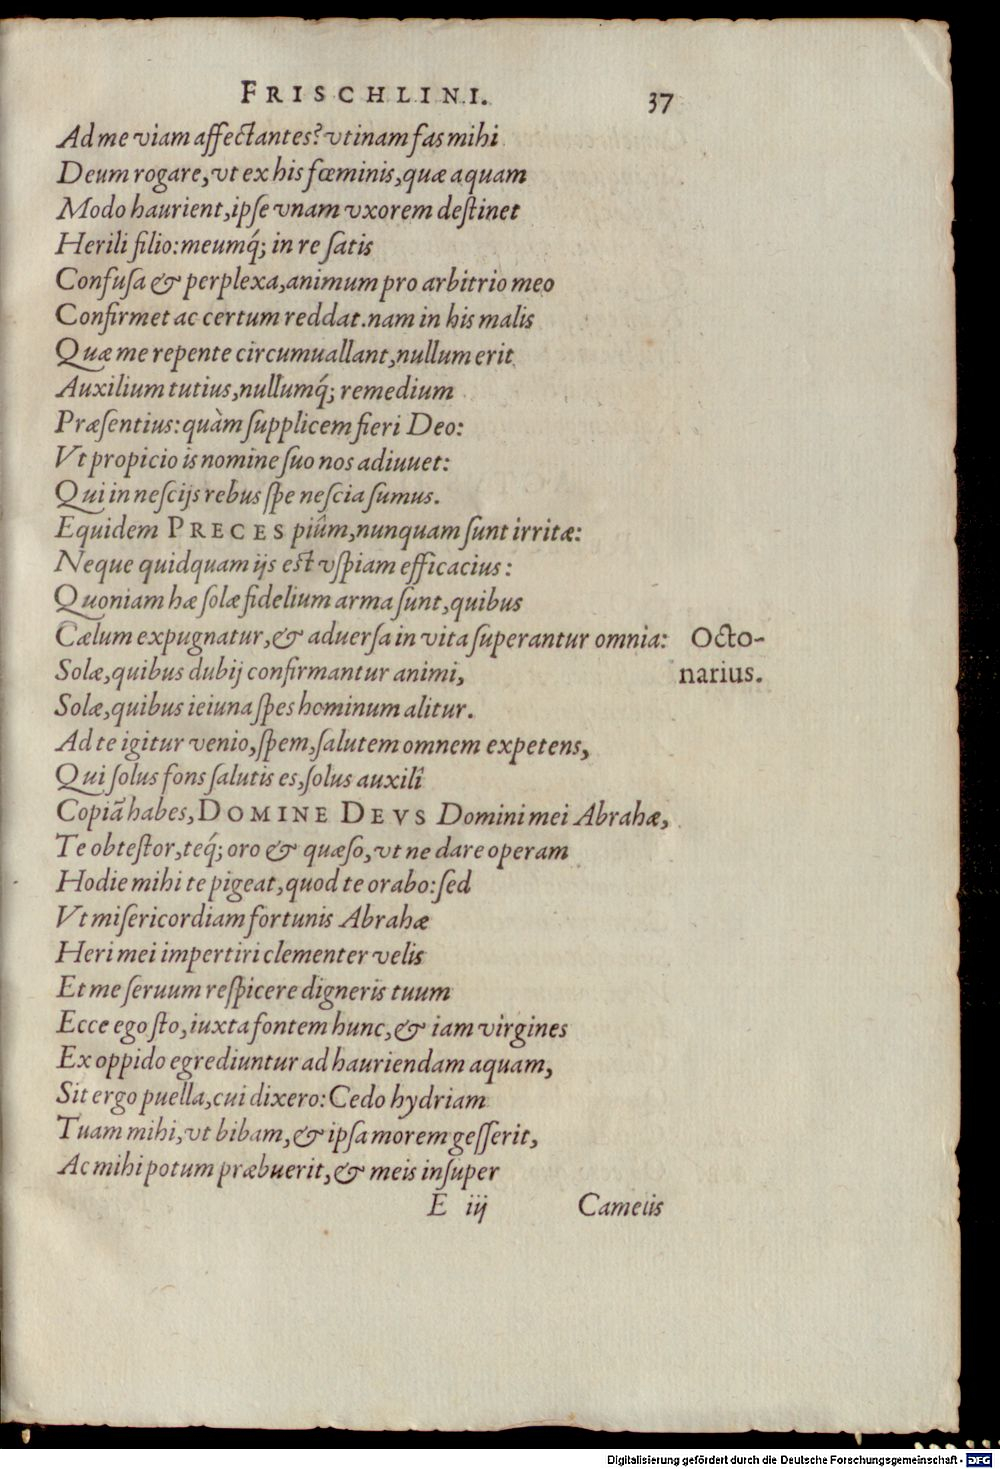 FRISCHLINI. 37
Ad me viam affectantes? vtinam fas mihi
Deum rogare, vt ex his fœminis, quæ aquam
Modo haurient, ipse vnam vxorem destinet
Herili filio: meumq́; in re satis
Confusa & perplexa, animum pro arbitrio meo
Confirmet ac certum reddat. nam in his malis
Quæ me repente circumuallant, nullum erit
Auxilium tutius, nullumq́; remedium
Præsentius: quàm supplicem fieri Deo:
Vt propicio is nomine suo nos adiuuet:
Qui in nescijs rebus spe nescia sumus.
Equidem PRECES piûm, nunquam sunt irritæ:
Neque quidquam ijs est vspiam efficacius:
Quoniam hæ solæ fidelium arma sunt, quibus
Cælum expugnatur, & aduersa in vita superantur omnia: Octo-
Solæ, quibus dubij confirmantur animi, narius.
Solæ, quibus ieiuna spes hominum alitur.
Ad te igitur venio, spem, salutem omnem expetens,
Qui solus fons salutis es, solus auxilî
Copiã habes, DOMINE DEVS Domini mei Abrahæ,
Te obtestor, teq́; oro & quæso, vt ne dare operam
Hodie mihi te pigeat, quod te orabo: sed
Vt misericordiam fortunis Abrahæ
Heri mei impertiri clementer velis
Et me seruum respicere digneris tuum
Ecce ego sto, iuxta fontem hunc, & iam virgines
Ex oppido egrediuntur ad hauriendam aquam,
Sit ergo puella, cui dixero: Cedo hydriam
Tuam mihi, vt bibam, & ipsa morem gesserit,
Ac mihi potum præbuerit, & meis insuper
E iij Camelis
Digitalisierung gefördert durch die Deutsche Forschungsgemeinschaft - DFG